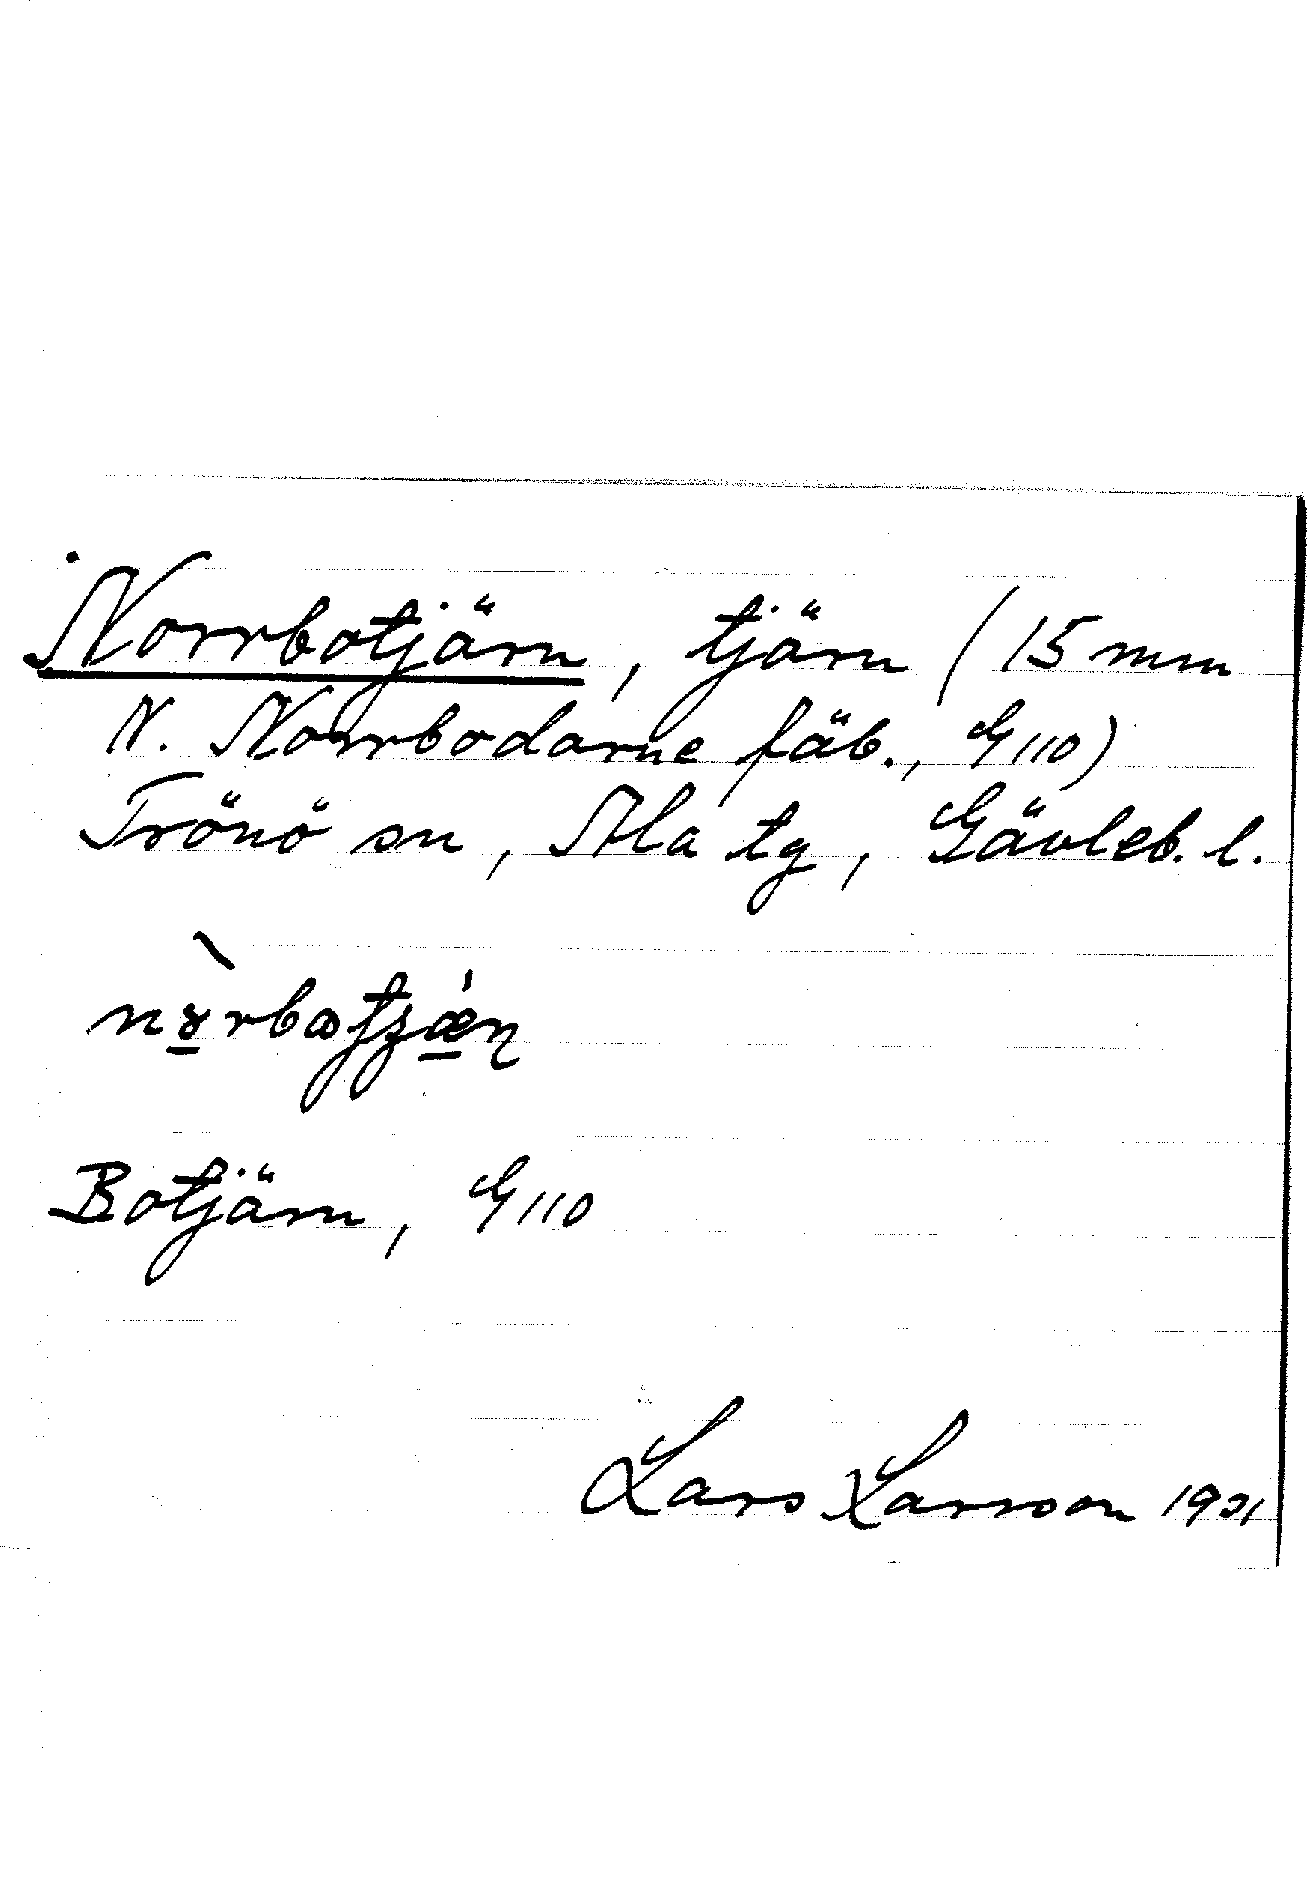 Norrbotjärn, tjärn (15 mm
N. Norrbodarne fäb., G110)
Trönö sn, Ala tg, Gävleb. l.
Botjärn, G110
Lars Larsson